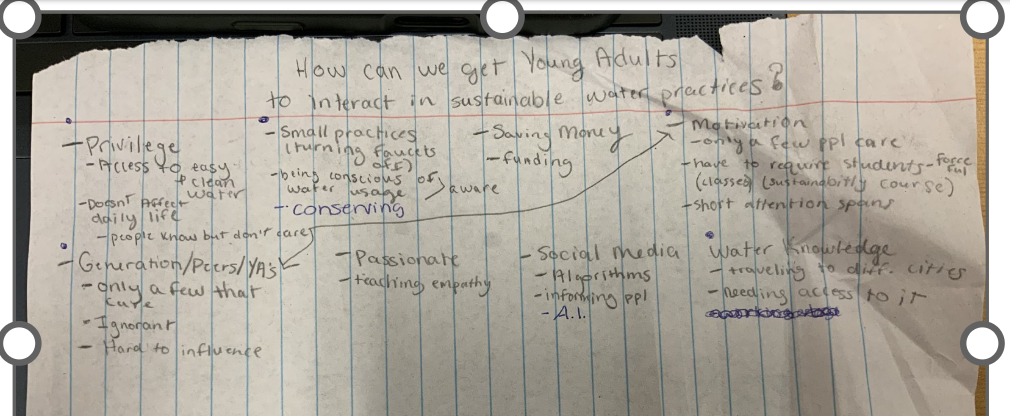 How can we get Young Adults
to interact in sustainable water practices?
- Privilege
- Access to easy
+ clean
water
- Doesn't Affect
daily life
- people know but don't care
- Small practices
(turning faucets
off)
- being conscious of
water usage
aware
- conserving
- Saving Money
- funding
- Motivation
- only a few ppl care
- have to require students - force
ful
(classes) (sustainabitly course)
- short attention spans
- Generation/Peers/YA's
- only a few that
care
- Ignorant
- Hard to influence
- Passionate
- teaching empathy
- Social media
- Algorithms
- informing ppl
- A.I.
Water Knowledge
- traveling to diff. cities
- needing access to it